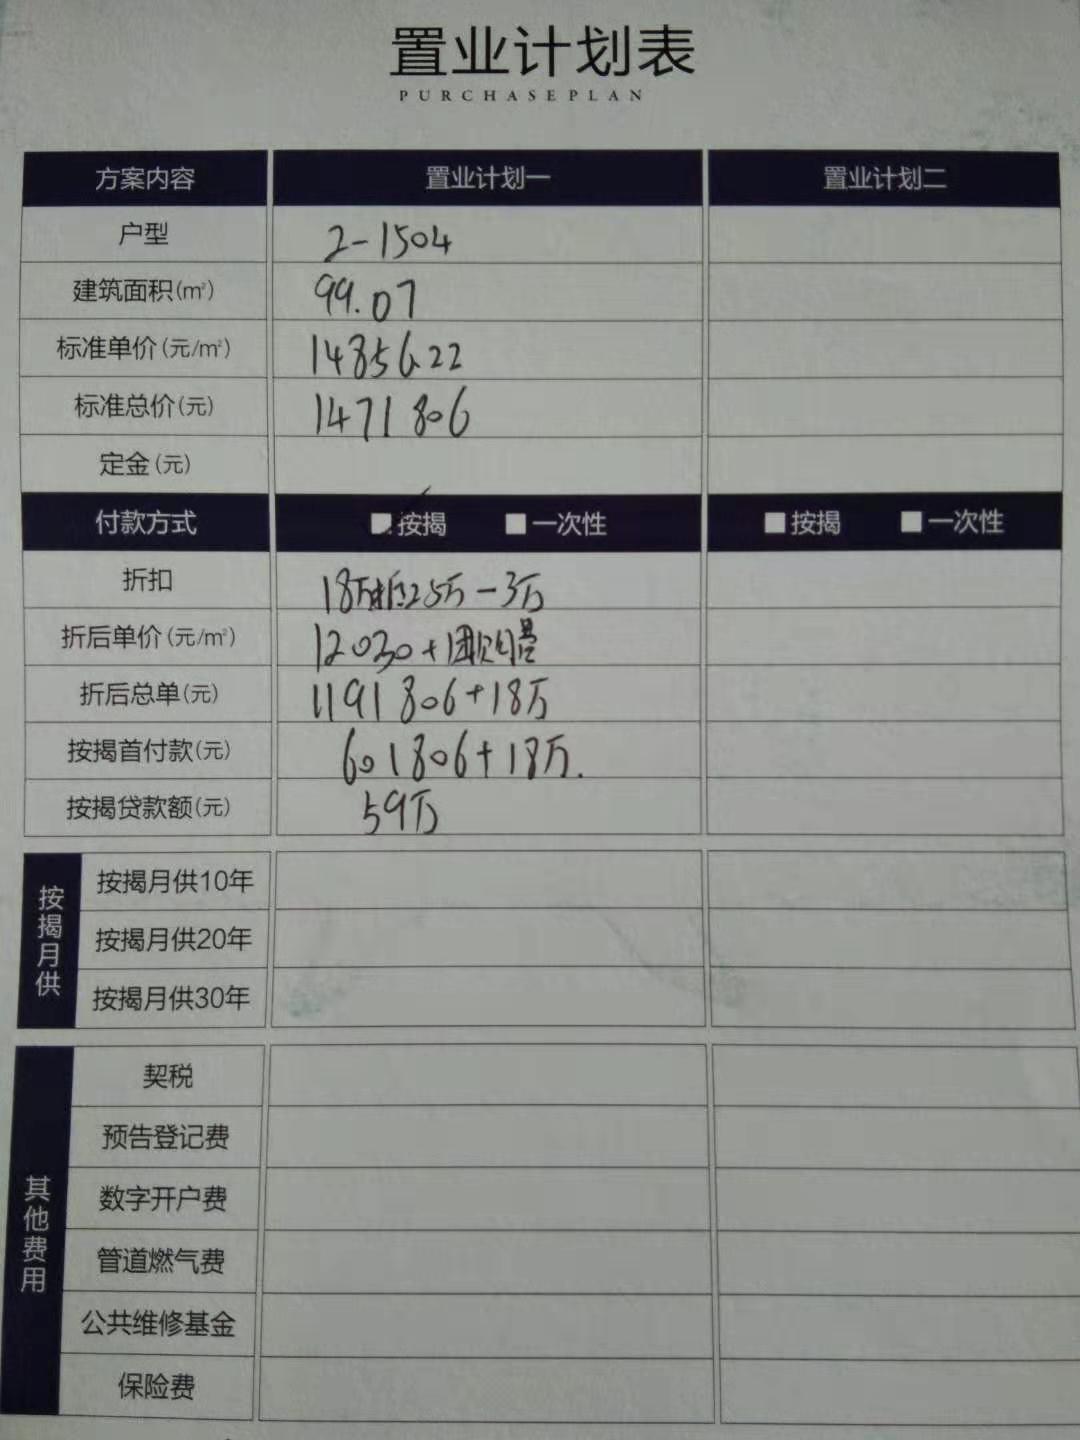 置业计划表
PURCHASEPLAN
方案内容 置业计划一 置业计划二
户型 2-1504
建筑面积(㎡) 99.07
标准单价(元/㎡) 14856.22
标准总价(元) 1471806
定金(元)
付款方式 ■按揭 ■一次性 ■按揭 ■一次性
折扣 18万抵25万-3万
折后单价(元/㎡) 12030+团购
折后总单(元) 1191806+18万
按揭首付款(元) 601806+18万.
按揭贷款额(元) 59万
按揭月供
按揭月供10年
按揭月供20年
按揭月供30年
其他费用
契税
预告登记费
数字开户费
管道燃气费
公共维修基金
保险费